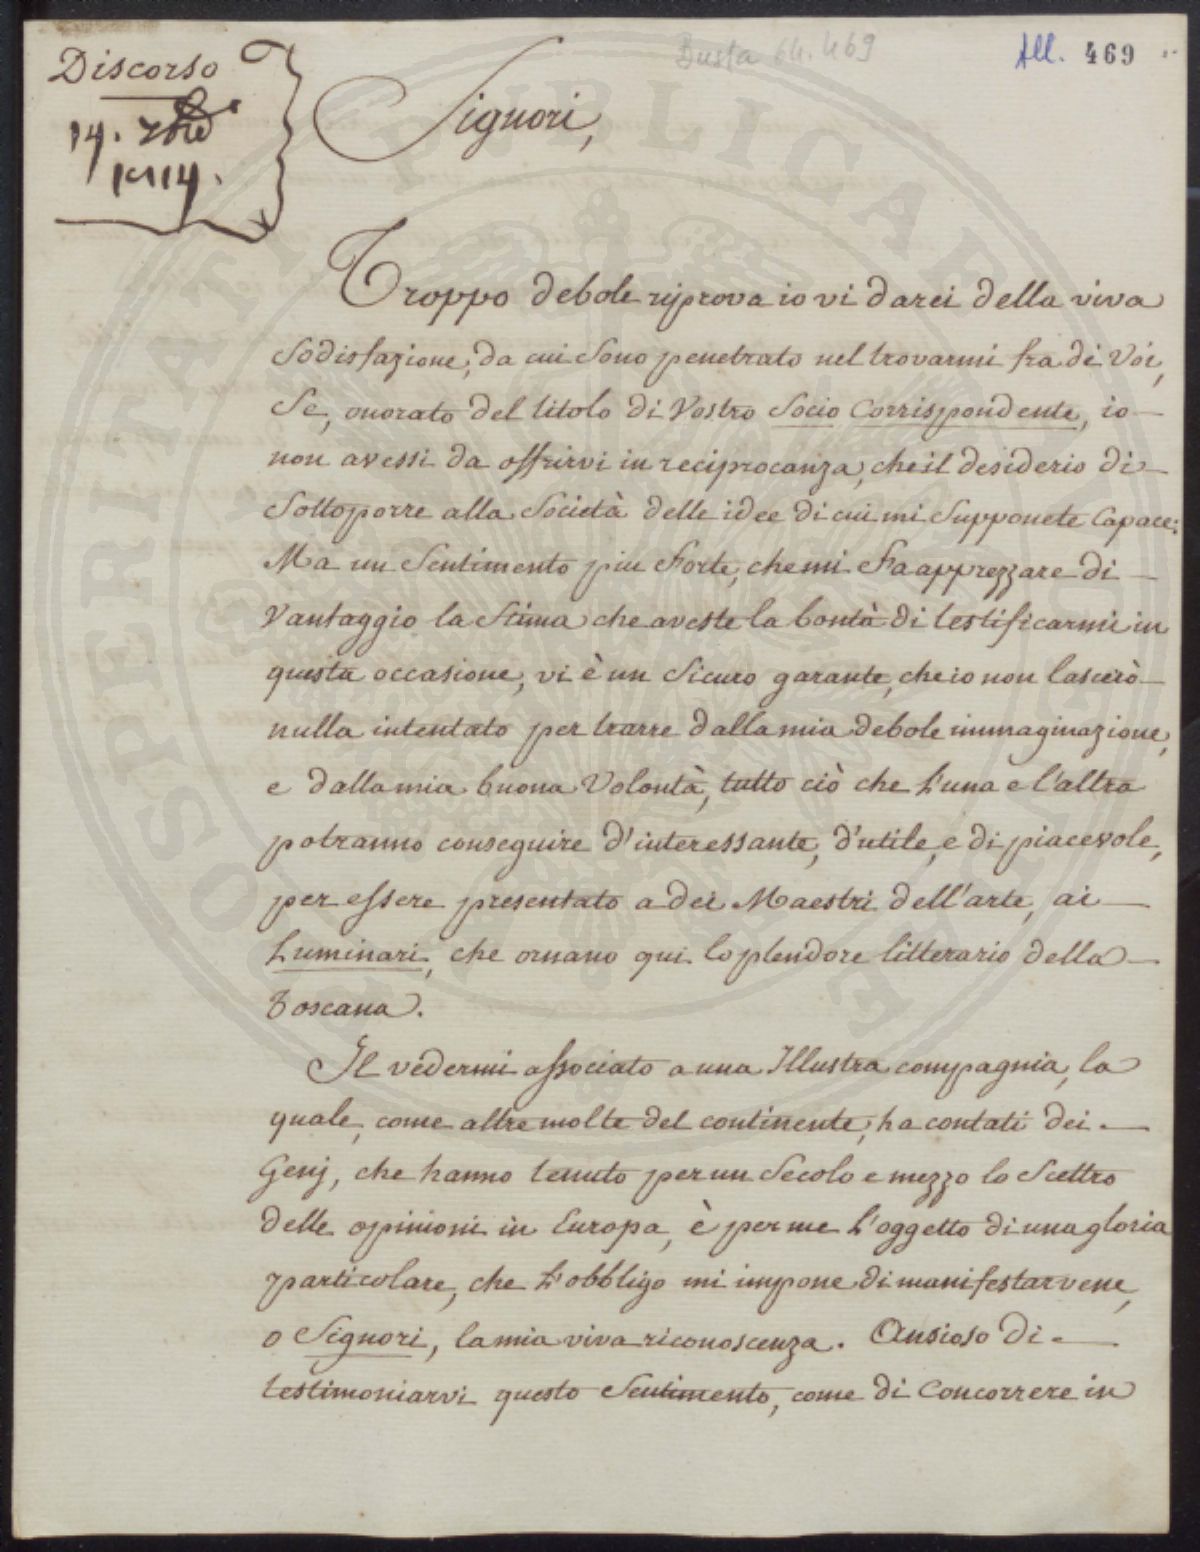 Busta 64. 469
All. 469
Discorso
14. 7bre
1814.
Signori,
Troppo debole riprova io vi darei della viva
Sodisfazione, da cui Sono penetrato nel trovarmi fra di Voi,
Se, onorato del titolo di Vostro Socio Corrispondente, io
non avessi da offrirvi in reciprocanza, che il desiderio di
Sottoporre alla Società delle idee di cui mi Supponete Capace:
Ma un Sentimento piu Forte, che mi Fa apprezzare di
Vantaggio la Stima che aveste la bontà di testificarmi in
questa occasione, vi è un Sicuro garante, che io non lascerò
nulla intentato per trarre dalla mia debole immaginazione,
e dalla mia buona Volontà, tutto ciò che L'una e l'altra
potranno conseguire d'interessante, d'utile, e di piacevole,
per essere presentato a dei Maestri dell'arte, ai
Luminari, che ornano qui lo plendore litterario della
Toscana.
Il vedermi associato a una Illustra compagnia, la
quale, come altre molte del continente, ha contati dei
Genj, che hanno tenuto per un Secolo e mezzo lo Scettro
delle opinioni in Europa, è per me L'oggetto di una gloria
particolare, che L'obbligo mi impone di manifestarvene,
o Signori, la mia viva riconoscenza. Ansioso di
testimoniarvi questo Sentimento, come di Concorrere in
PROSPERITATI PUBLICAE AUGENDAE